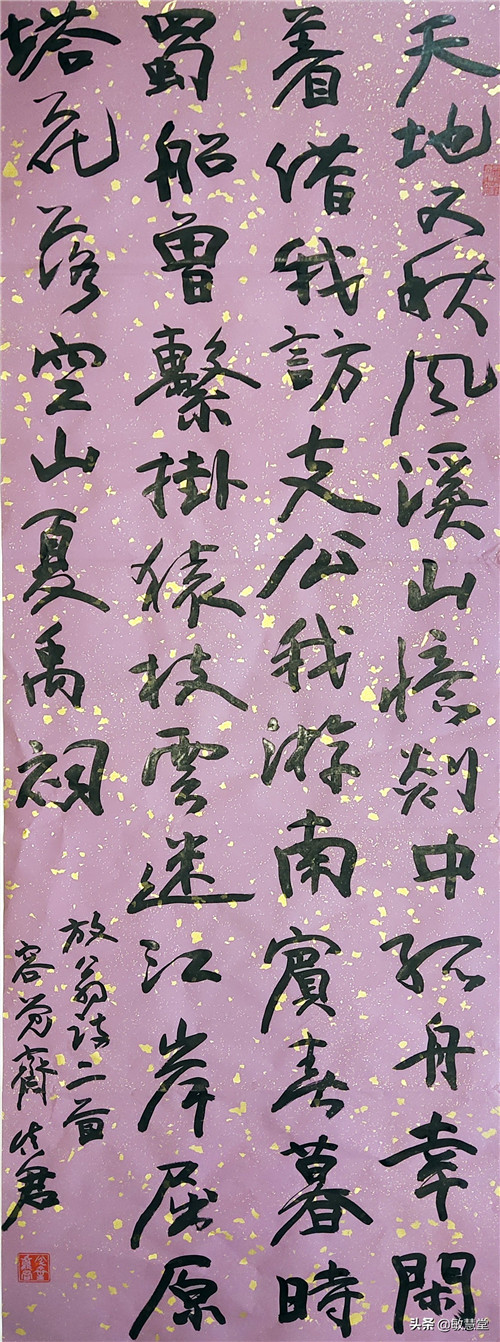 天地又秋风溪山憶剡中孤舟幸閑
着借我訪支公我游南賓春暮時
蜀船曾繫掛猿枝雲迷江岸屈原
塔花落空山夏禹祠
放翁诗二首
头条 @敏慧堂